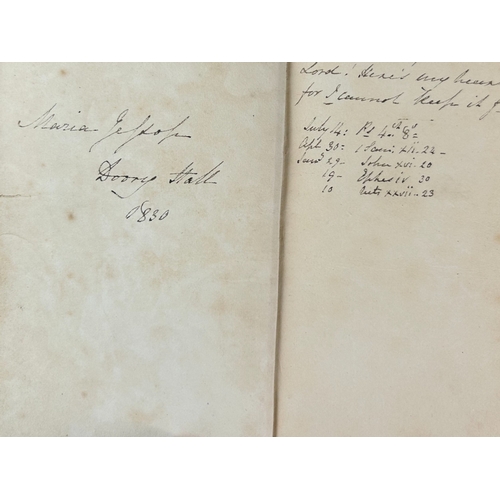 Maria Jessop
Doory Hall
1830
Lord! Here's my hear
for I cannot keep it
July 14: Ps 4th 8th
Apl 30- 1 Sam: xii. 22-
Jan: 29- John xvi. 20
19- Ephes iv 30
10 Acts xxvii- 23